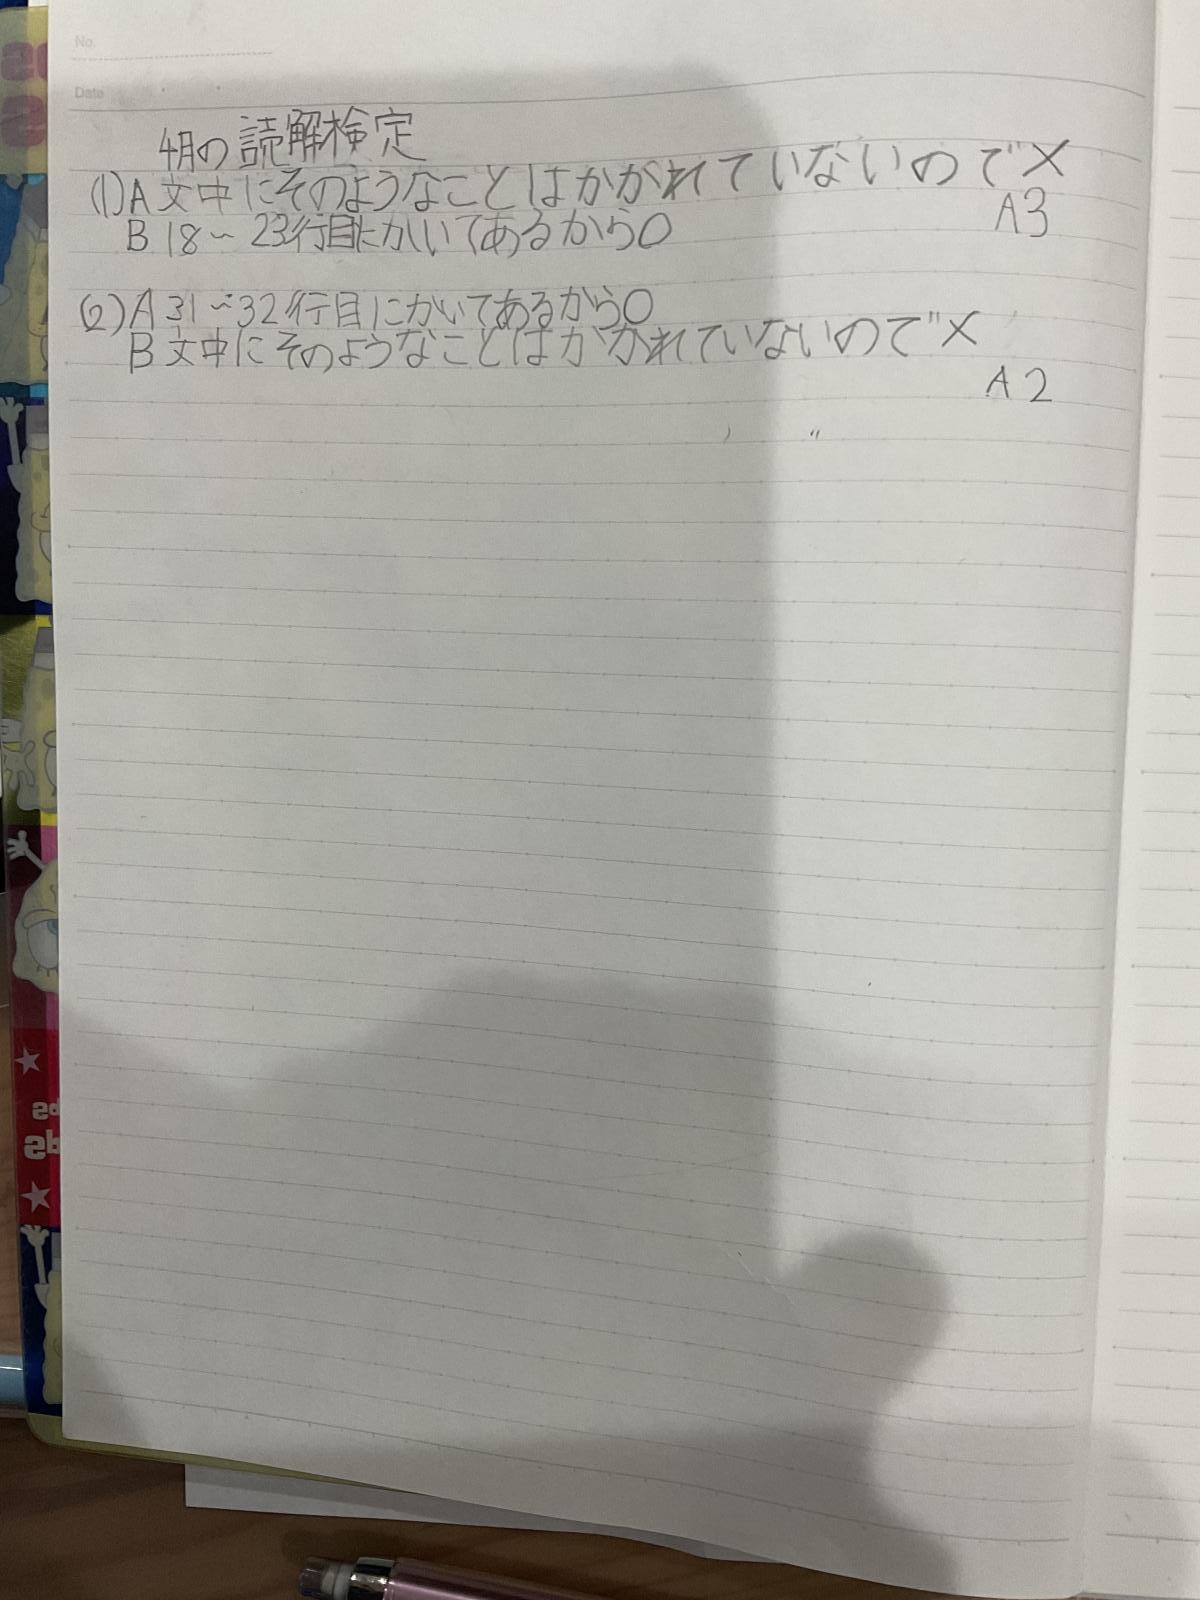 No.
Date
4月の読解検定
(1)A 文中にそのようなことはかかれていないので×
A3
B 18〜23行目にかいてあるから○
(2)A 31〜32行目にかいてあるから○
B 文中にそのようなことはかかれていないので×
A2